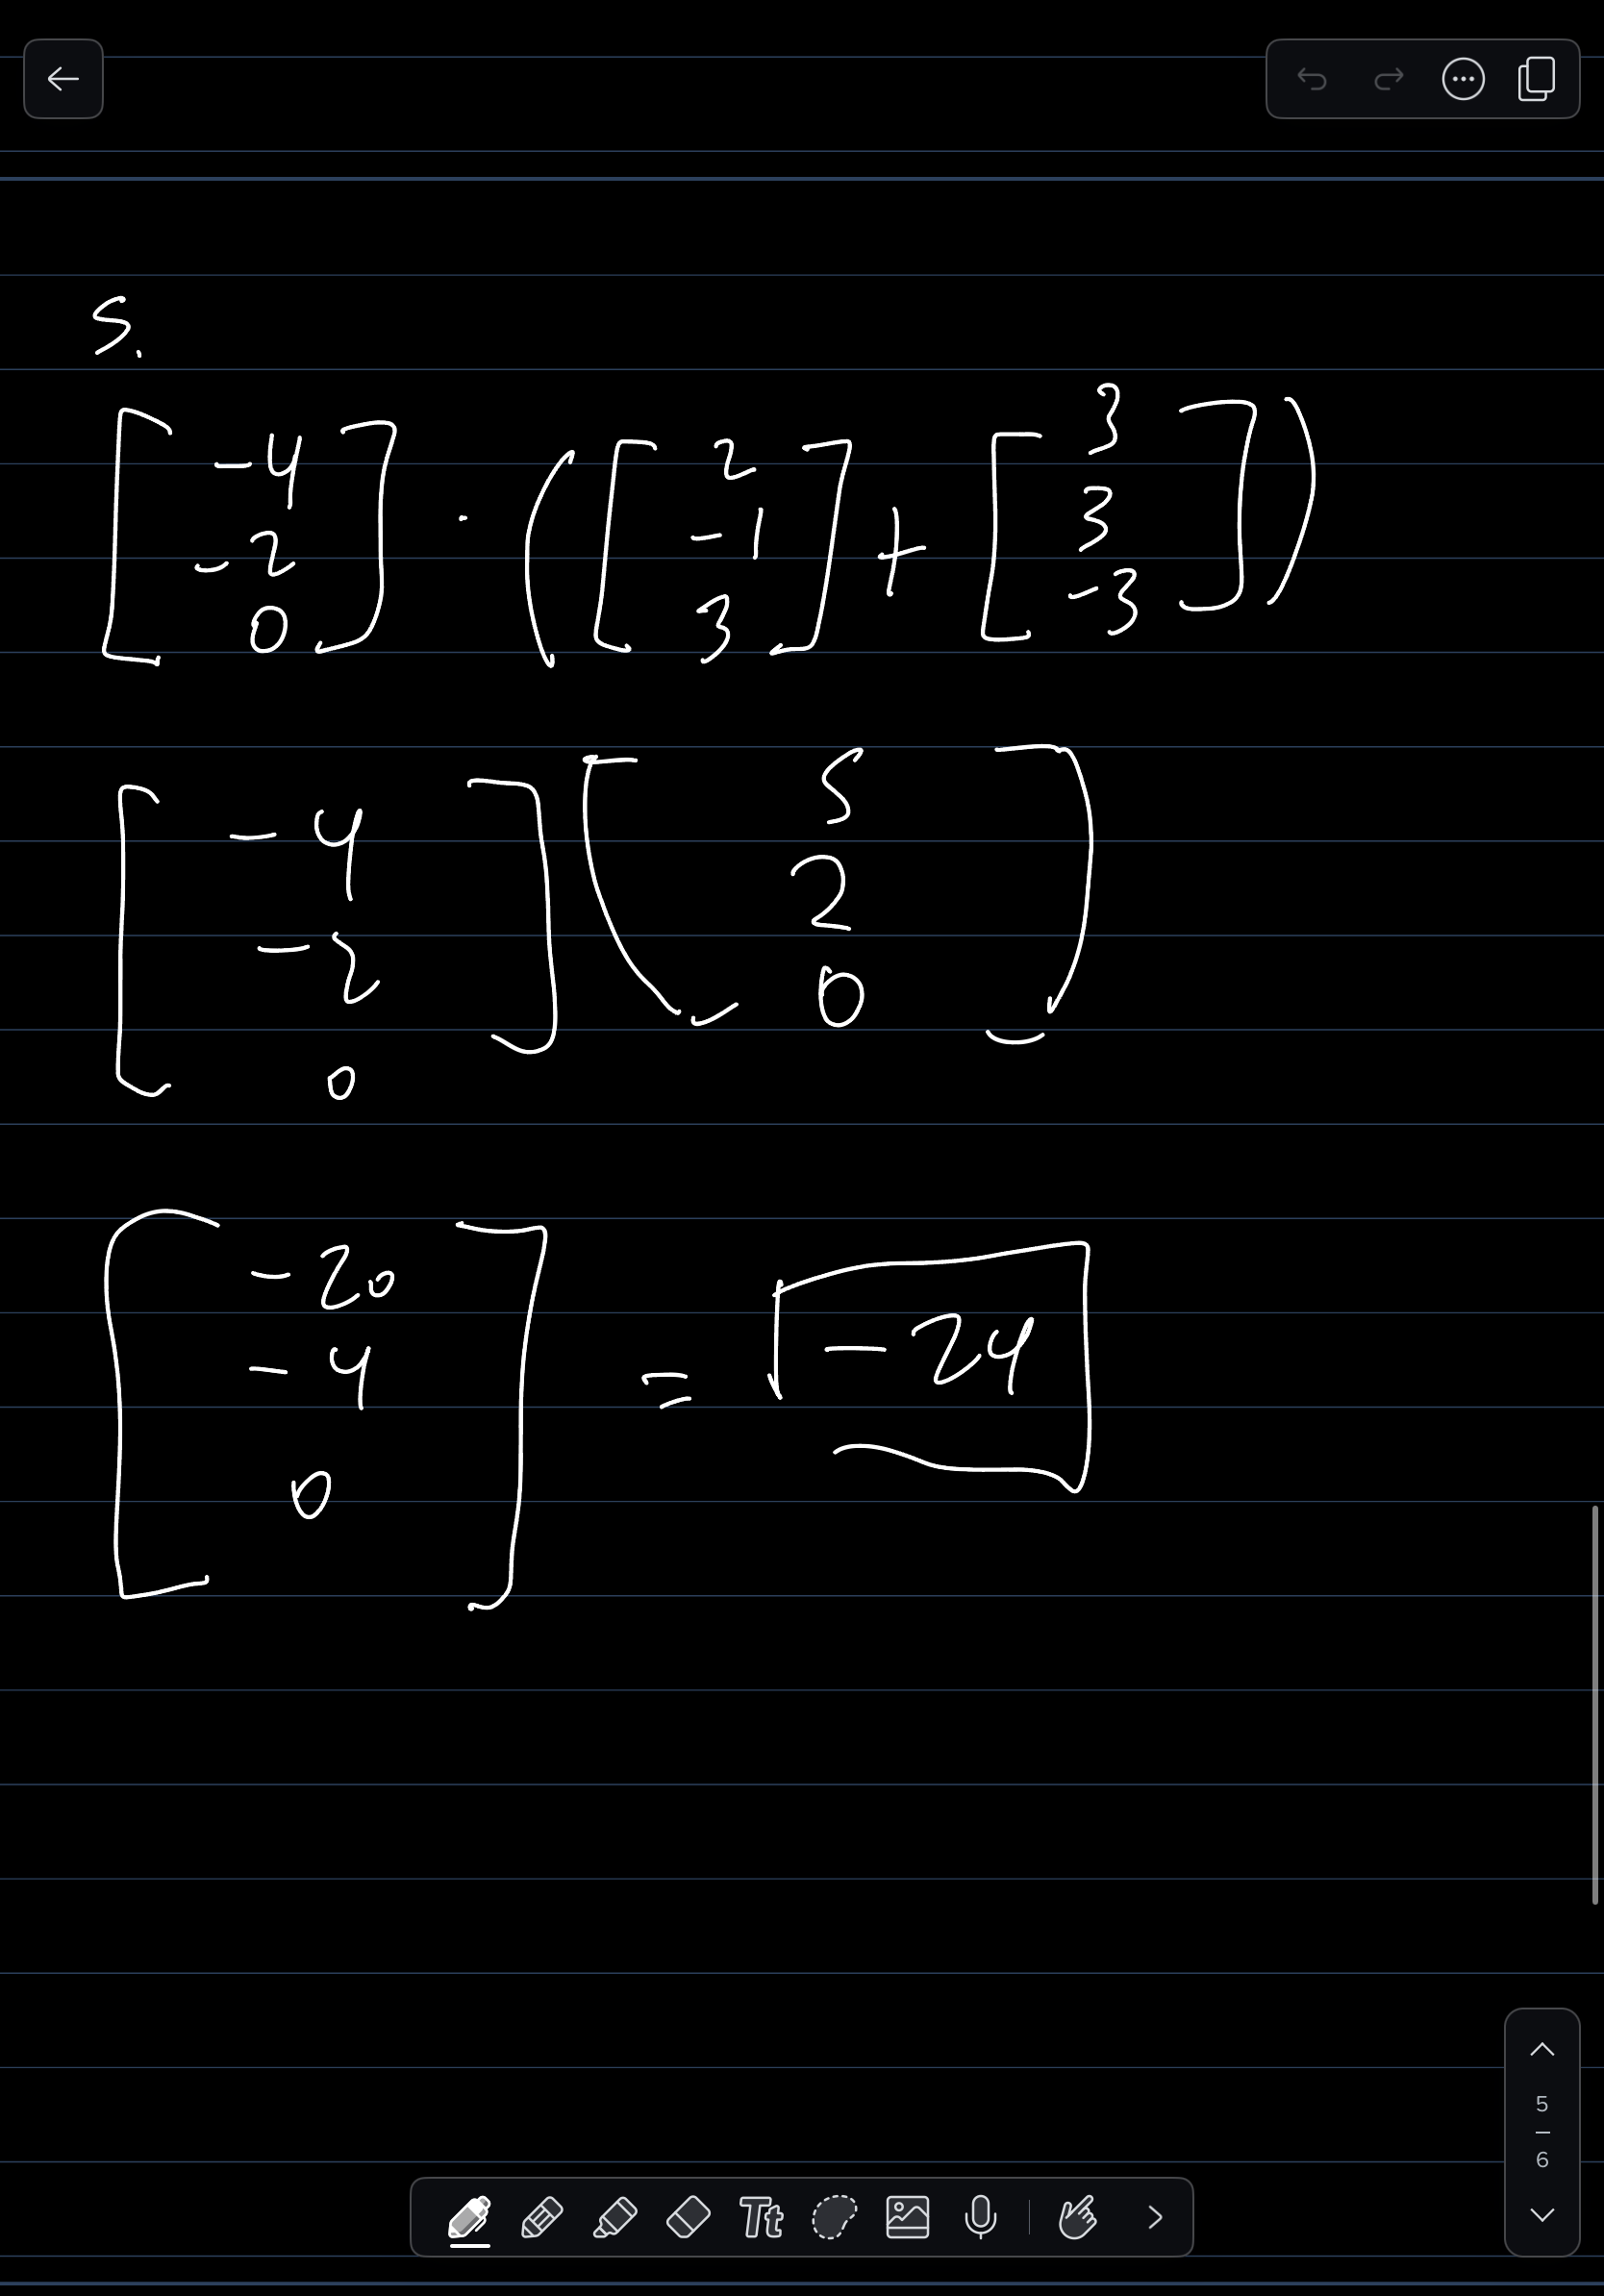 5.
[-4 -2 0] · ([2 -1 3] + [3 3 -3])
[-4 -2 0] [5 2 0]
[-20 -4 0] = -24
5
6
Tt